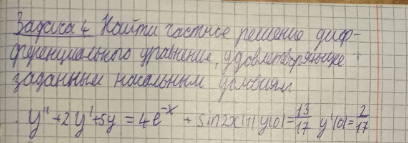 Задача 4 Найти частное решение диф-
ференциального уравнения, удовлетворяющее
заданным начальным условиям
y'' + 2y' + 5y = 4e^{-x} + sin2x y(0) = 13/17 y'(0) = 2/17